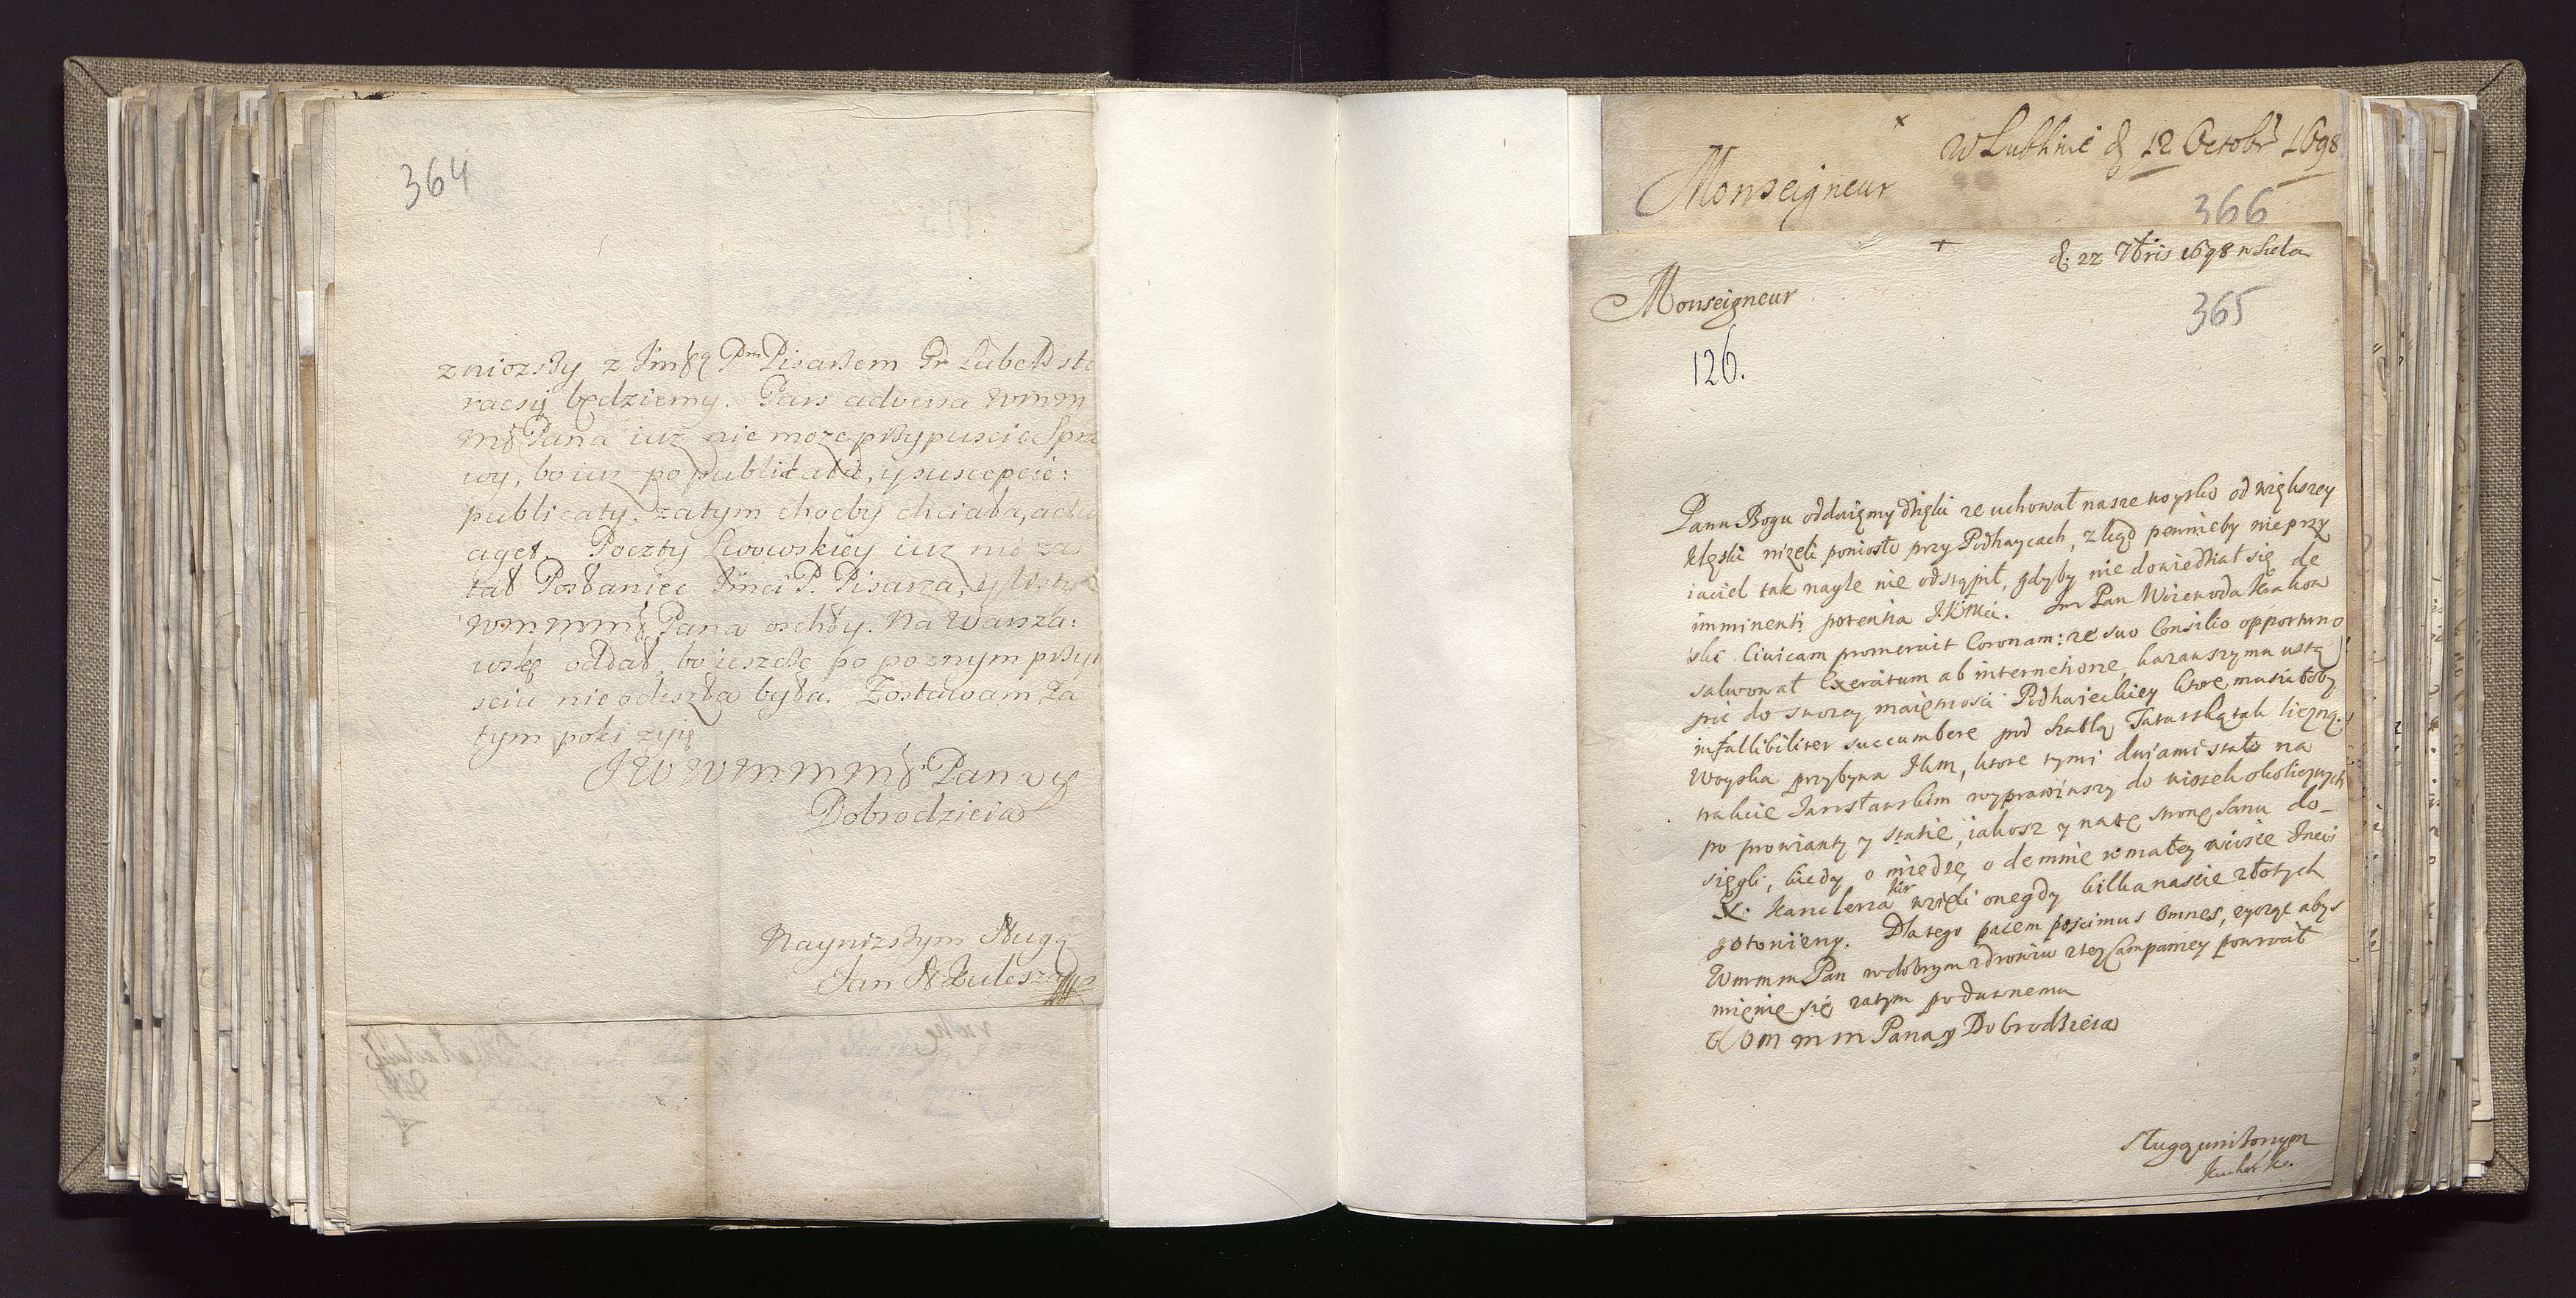 364
zniozszy z Jmscą Pm Pisarzem Gr Lubelsk sta
racsię będziemy. Pars adversa Wmm
mś Pana iuz nie moze przypuscic Spra
wy, bo iuz po publikacie, y suscepcie:
publicaty, zatym chocby chciała,
aget. Poczty Lwowskiey iuz nie zas
tał Posłaniec Jmci P. Pisarza, y listy
Wmmmś Pana oschły. Na Warsza:
wskę oddał, bo ieszcze po poznym przyi
sciu nie odeszła była. Zostawam za
tym poki zyię
JWWmmmś Pana y
Dobrodzieia
Nayniższym Sługą
Jan
w Lublinie d 12 Octobr 1698
Monseigneur
366
d. 22 7bris 1698
Monseigneur
365
126.
Panu Bogu oddaięmy dzięki ze uchował nasze woysko od większey
klęski nizeli poniosło przy Podhaycach, zkąd pewnieby nieprzy
iaciel tak nagle nie odstąpił, gdyby nie dowiedział się de
imminenti potentia J.K.Mci. Jm Pan Woiewoda Krakow
ski Civicam promeruit Coronam: ze suo Consilio opportuno
salwował Exercitum ab internecione, kazawszy mu ustą
pic do swoiey maiętnosci Podhaieckiey ktore musiałoby
infallibiliter succumbere pod szablą Tatarską tak liczną.
Woyska przybywa Jkm, ktore tymi dniami stało na
trakcie Jarosławskim wyprawiwszy do wiosek okolicznych
po prowianty y stacie, iakosz y na tę stronę Sanu do-
sięgli, kiedy o miedzę odemnie w małey wiosce Jmci
X. Kanclerza wzięli onegdy kilkanascie złotych
gotowizny. Dlatego pacem poscimus omnes, zyczę abys
Wmmm Pan w dobrym zdrowiu z tey Campaniey powrocił
mięnię się zatym po dawnemu
Wm m m Pana y Dobrodzieia
sługą uniżonym